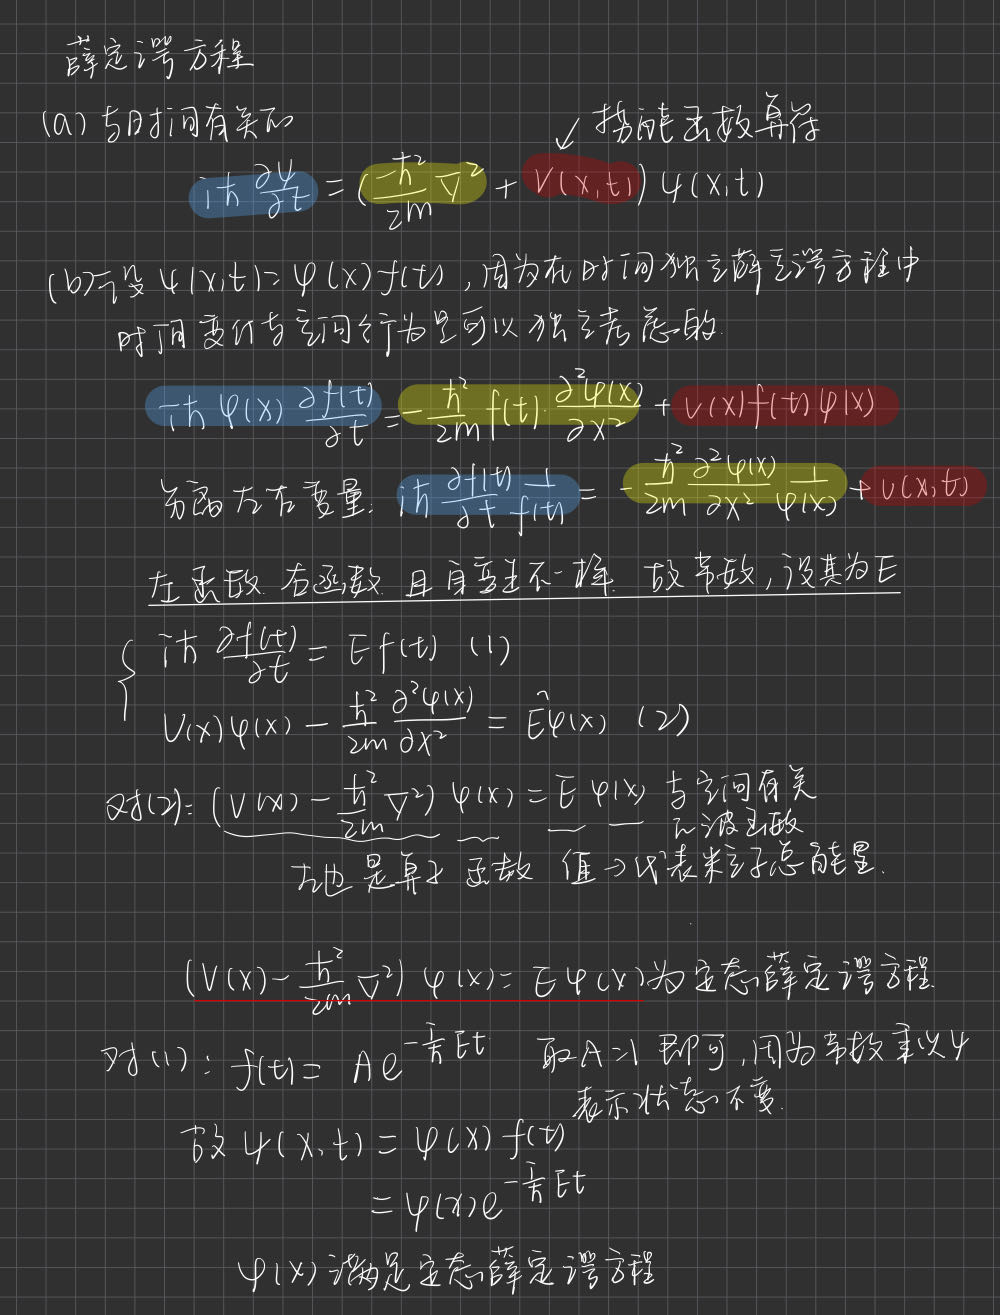 薛定谔方程
(a) 与时间有关的
↙ 势能函数算符
iħ ∂ψ/∂t = (-ħ²/2m ∇² + V(x,t)) ψ(x,t)
(b) 设 ψ(x,t) = φ(x) f(t), 因为在时间独立薛定谔方程中
时间变化与空间行为是可以独立考虑的.
iħ φ(x) ∂f(t)/∂t = -ħ²/2m f(t)·∂²φ(x)/∂x² + V(x)f(t)φ(x)
分离左右变量. iħ ∂f(t)/∂t 1/f(t) = -ħ²/2m ∂²φ(x)/∂x² 1/φ(x) + V(x,t)
左函数 右函数 且自变量不一样 故常数, 设其为E
{ iħ ∂f(t)/∂t = Ef(t) (1)
V(x)φ(x) - ħ²/2m ∂²φ(x)/∂x² = Êφ(x) (2)
对(2): (V(x) - ħ²/2m ∇²) φ(x) = E φ(x) 与空间有关
的波函数
是算子 函数 值→代表粒子总能量.
(V(x) - ħ²/2m ∇²) φ(x) = Eφ(x) 为定态薛定谔方程.
对(1): f(t) = Ae^(-i/ħ Et) 取A=1 即可, 因为常数乘以ψ
表示状态不变.
故 ψ(x,t) = φ(x) f(t)
= φ(x)e^(-i/ħ Et)
φ(x)满足定态薛定谔方程